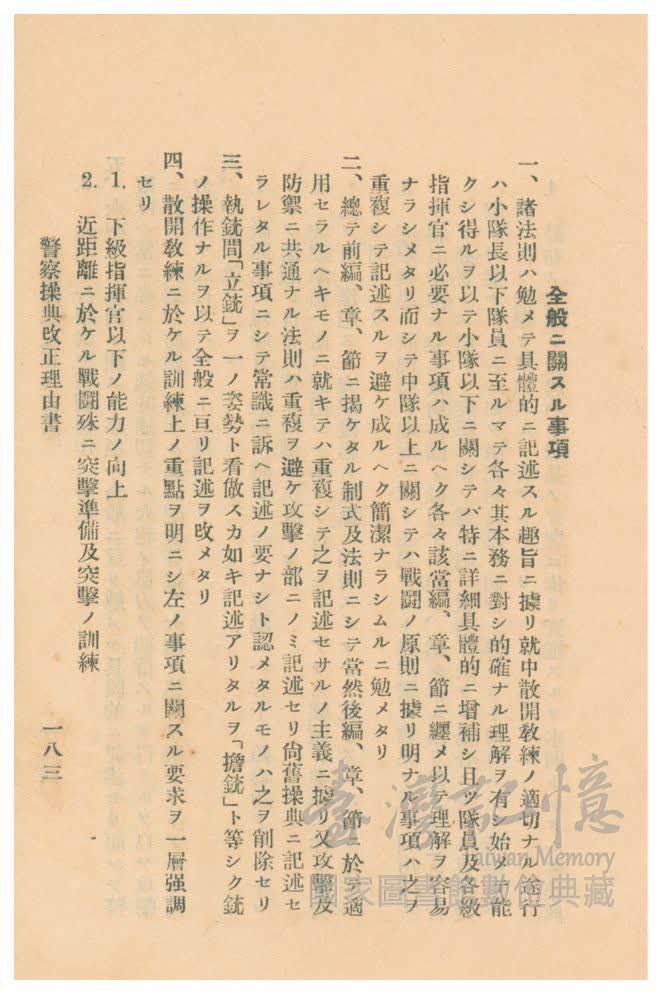 全般ニ關スル事項
一、諸法則ハ勉メテ具體的ニ記述スル趣旨ニ據リ就中散開敎練ノ適切ナル遂行
ハ小隊長以下隊員ニ至ルマテ各々其本務ニ對シ的確ナル理解ヲ有シ始メテ能
クシ得ルヲ以テ小隊以下ニ關シテバ特ニ詳細具體的ニ增補シ且ツ隊員及各級
指揮官ニ必要ナル事項ハ成ルヘク各々該當編、章、節ニ纒メ以テ理解ヲ容易
ナラシメタリ而シテ中隊以上ニ關シテハ戰鬪ノ原則ニ據リ明ナル事項ハ之ヲ
重複シテ記述スルヲ避ケ成ルヘク簡潔ナラシムルニ勉メタリ
二、總テ前編、章、節ニ揭ケタル制式及法則ニシテ當然後編、章、節ニ於テ適
用セラルヘキモノニ就キテハ重複シテ之ヲ記述セサルノ主義ニ據リ又攻擊及
防禦ニ共通ナル法則ハ重複ヲ避ケ攻擊ノ部ニノミ記述セリ尙舊操典ニ記述セ
ラレタル事項ニシテ常識ニ訴ヘ記述ノ要ナシト認メタルモノハ之ヲ削除セリ
三、執銃間「立銃」ヲ一ノ姿勢ト看做スカ如キ記述アリタルヲ「擔銃」ト等シク銃
ノ操作ナルヲ以テ全般ニ亘リ記述ヲ改メタリ
四、散開敎練ニ於ケル訓練上ノ重點ヲ明ニシ左ノ事項ニ關スル要求ヲ一層强調
セリ
1. 下級指揮官以下ノ能力ノ向上
2. 近距離ニ於ケル戰鬪殊ニ突擊準備及突擊ノ訓練
警察操典改正理由書
一八三
臺灣記憶
Taiwan Memory
國家圖書館數位典藏